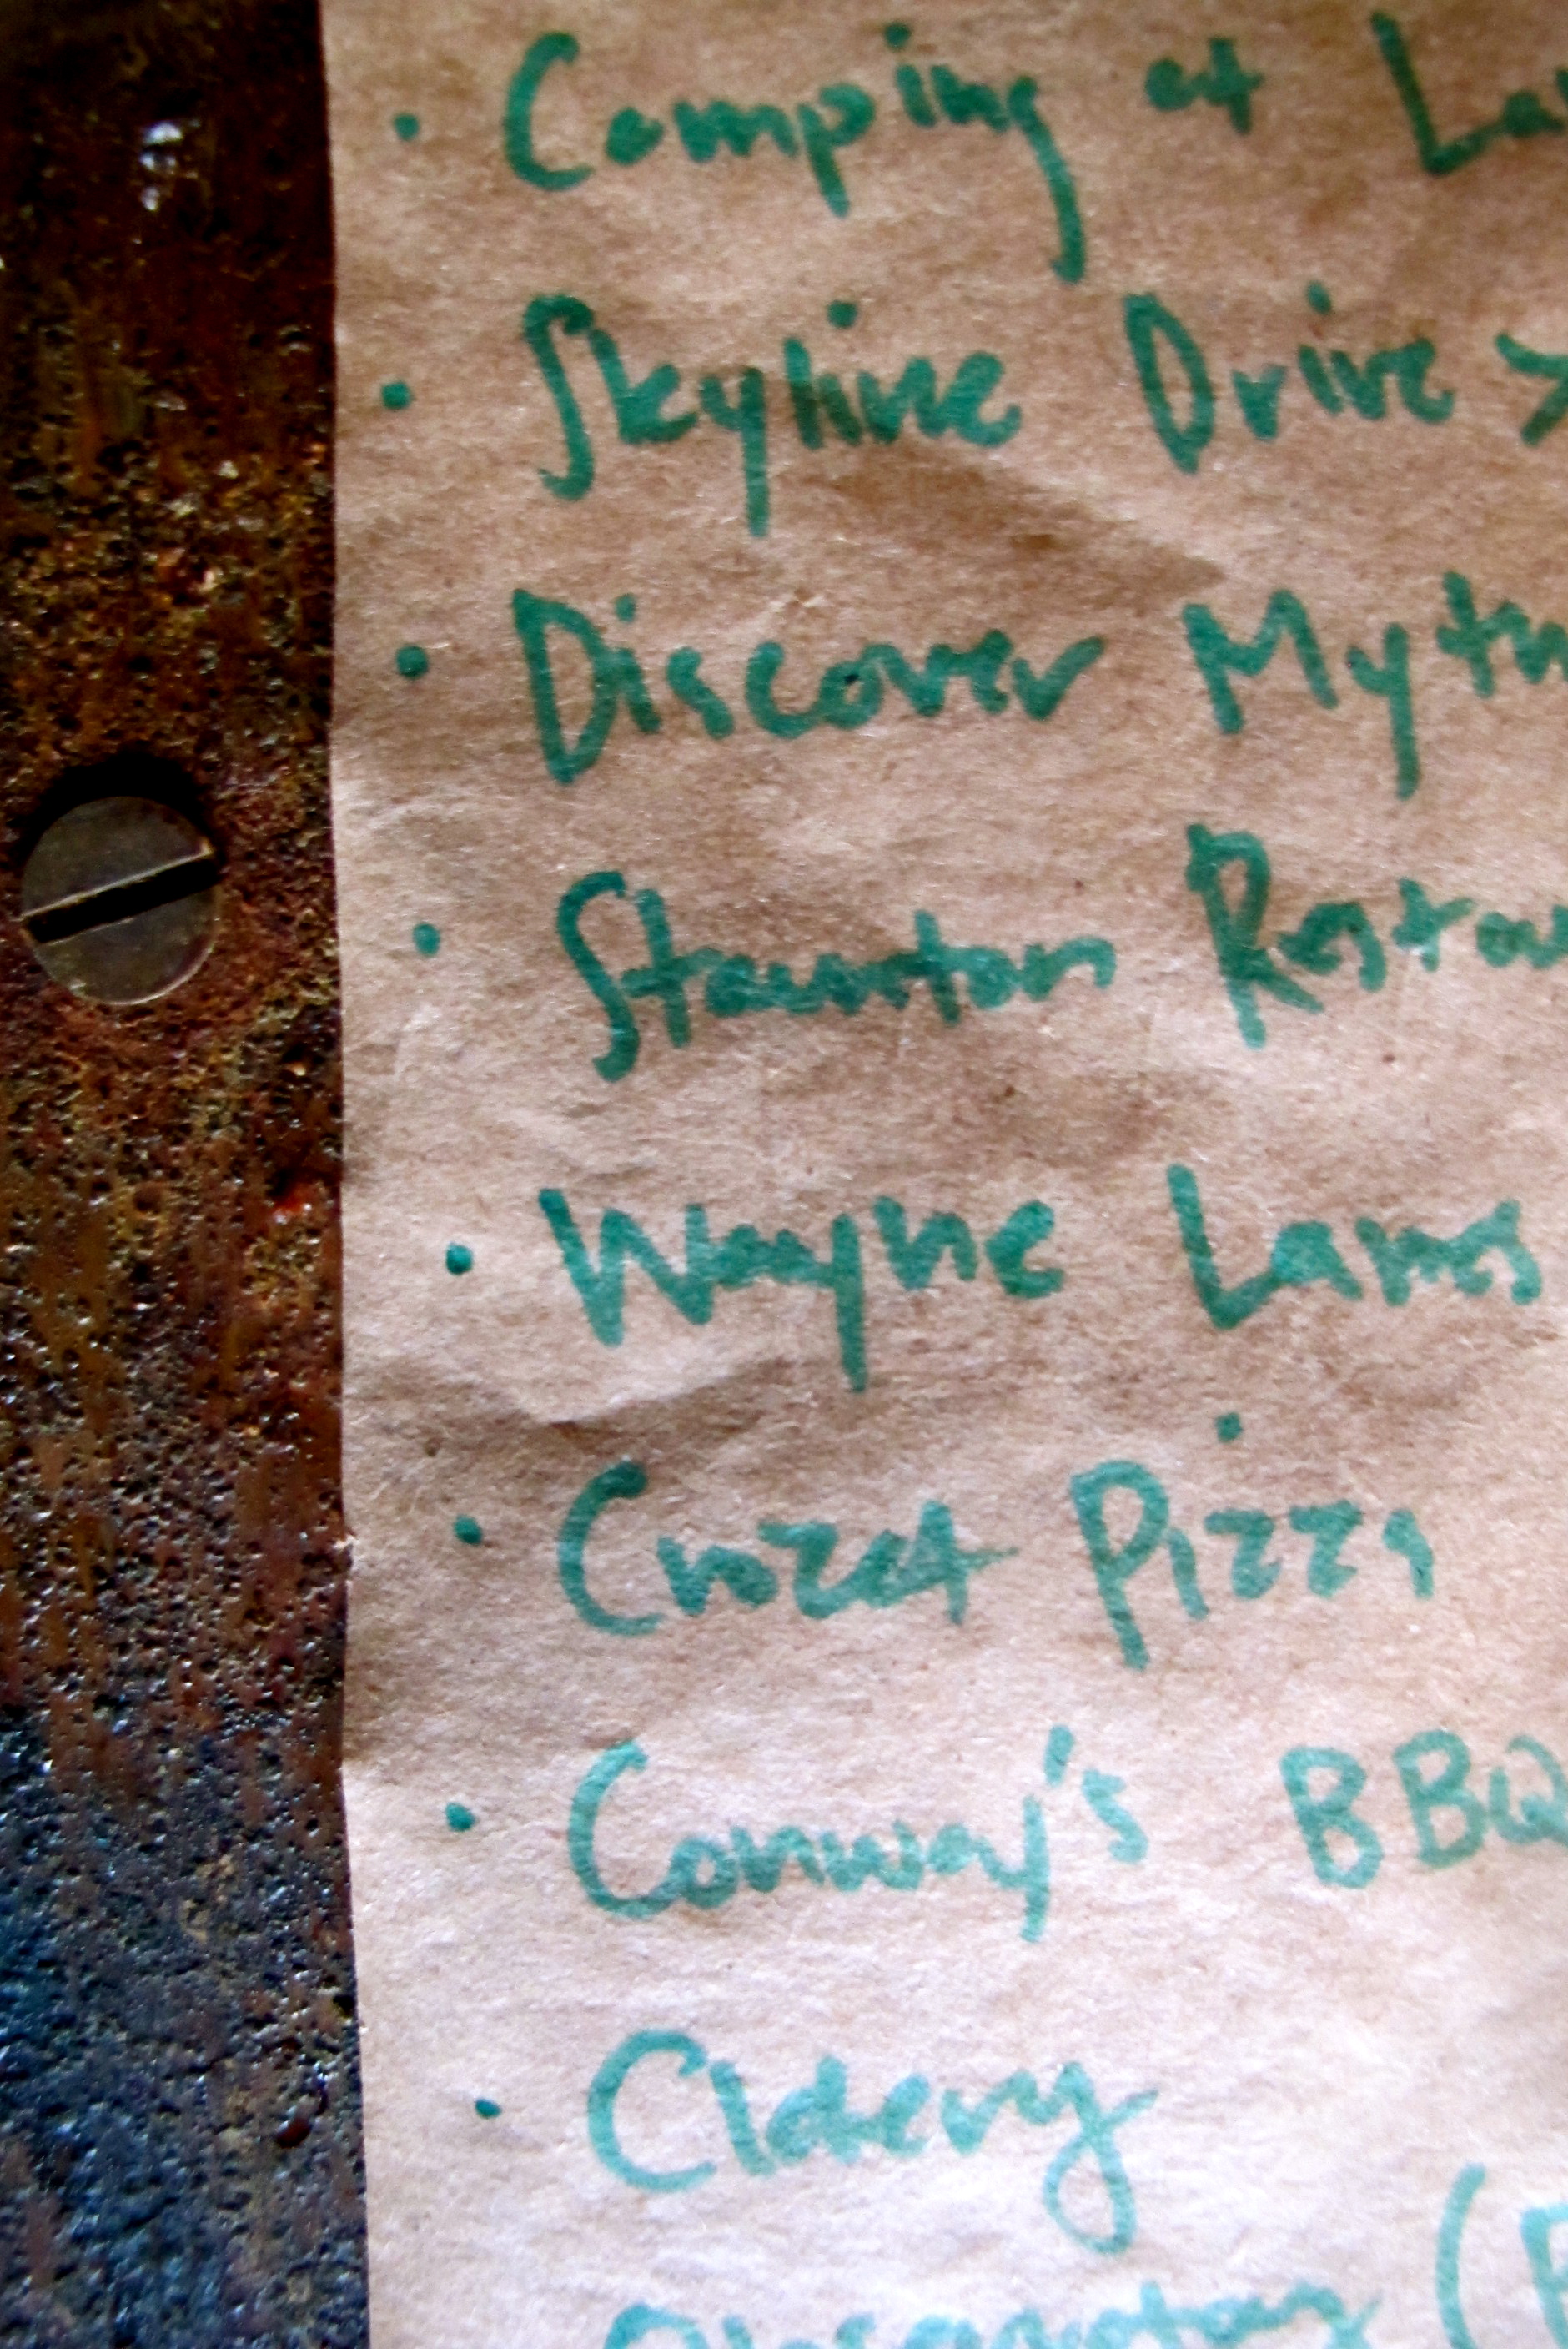 • Camping at La
• Skyline Drive >
• Discover Myth
• Staunton Restau
• Wayne Lanes
• Crozet Pizza
• Conway's BBQ
• Cidery
(